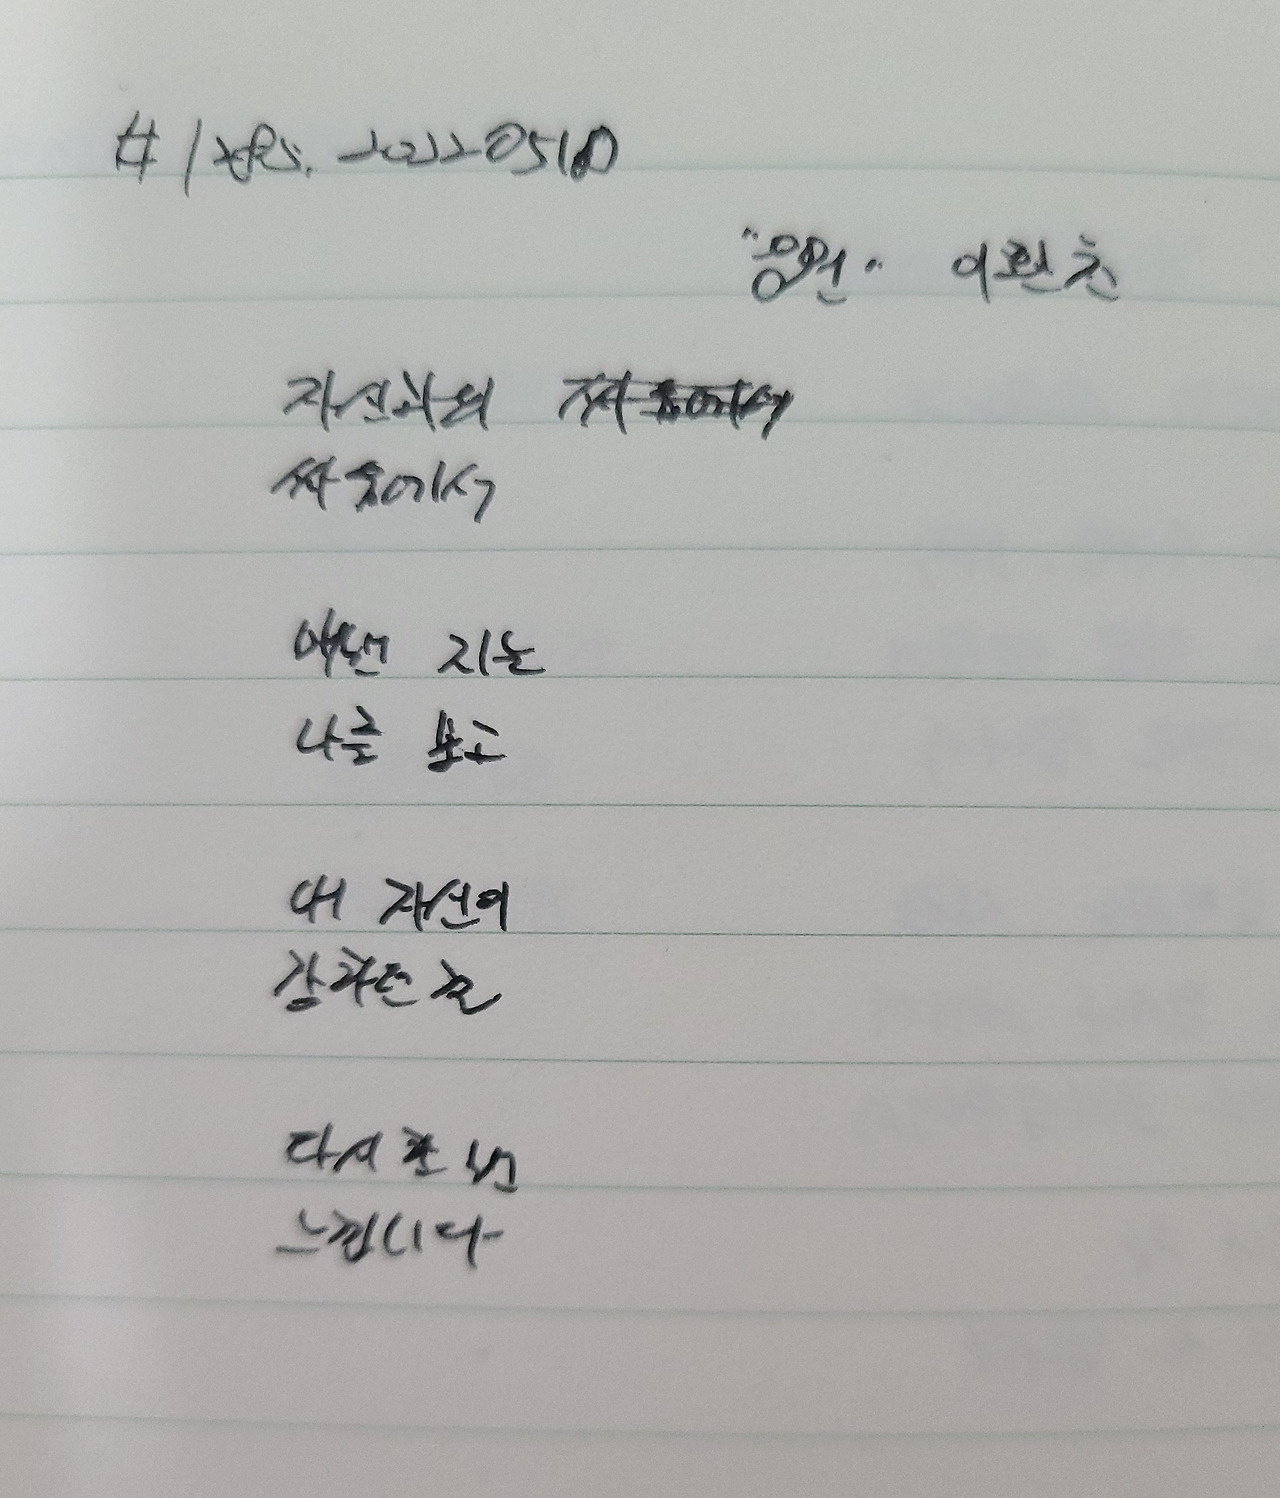 "응원" 이환천
자신과의
싸움에서
매번 지는
나를 보고
내 자신이
강하단 걸
다시 한 번
느낍니다